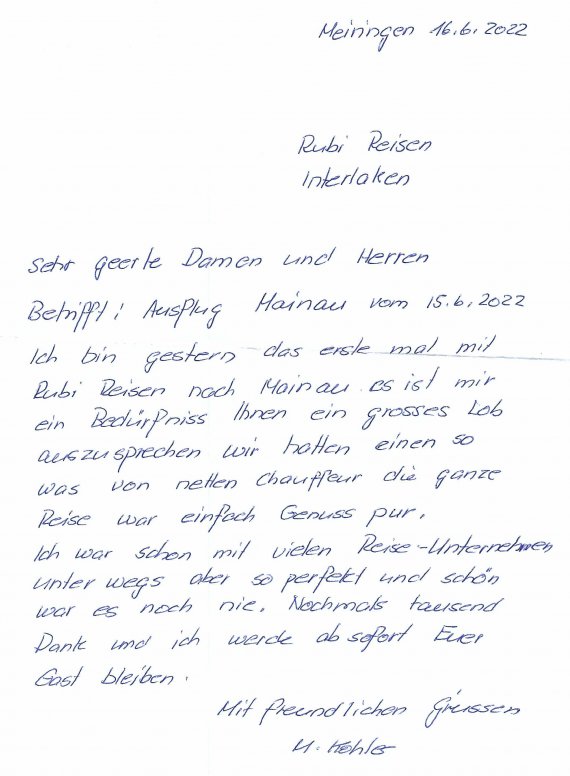 Meiringen 16.6.2022
Rubi Reisen
Interlaken
Sehr geerte Damen und Herren
Betrifft: Ausflug Mainau vom 15.6.2022
Ich bin gestern das erste mal mit
Rubi Reisen nach Mainau. es ist mir
ein Bedürfniss Ihnen ein grosses Lob
auszusprechen wir hatten einen so
was von netten Chauffeur die ganze
Reise war einfach Genuss pur.
Ich war schon mit vielen Reise-Unternehmen
unter wegs aber so perfekt und schön
war es noch nie. Nochmals tausend
Dank und ich werde ab sofort Euer
Gast bleiben.
Mit freundlichen Grüssen
M. Kohler